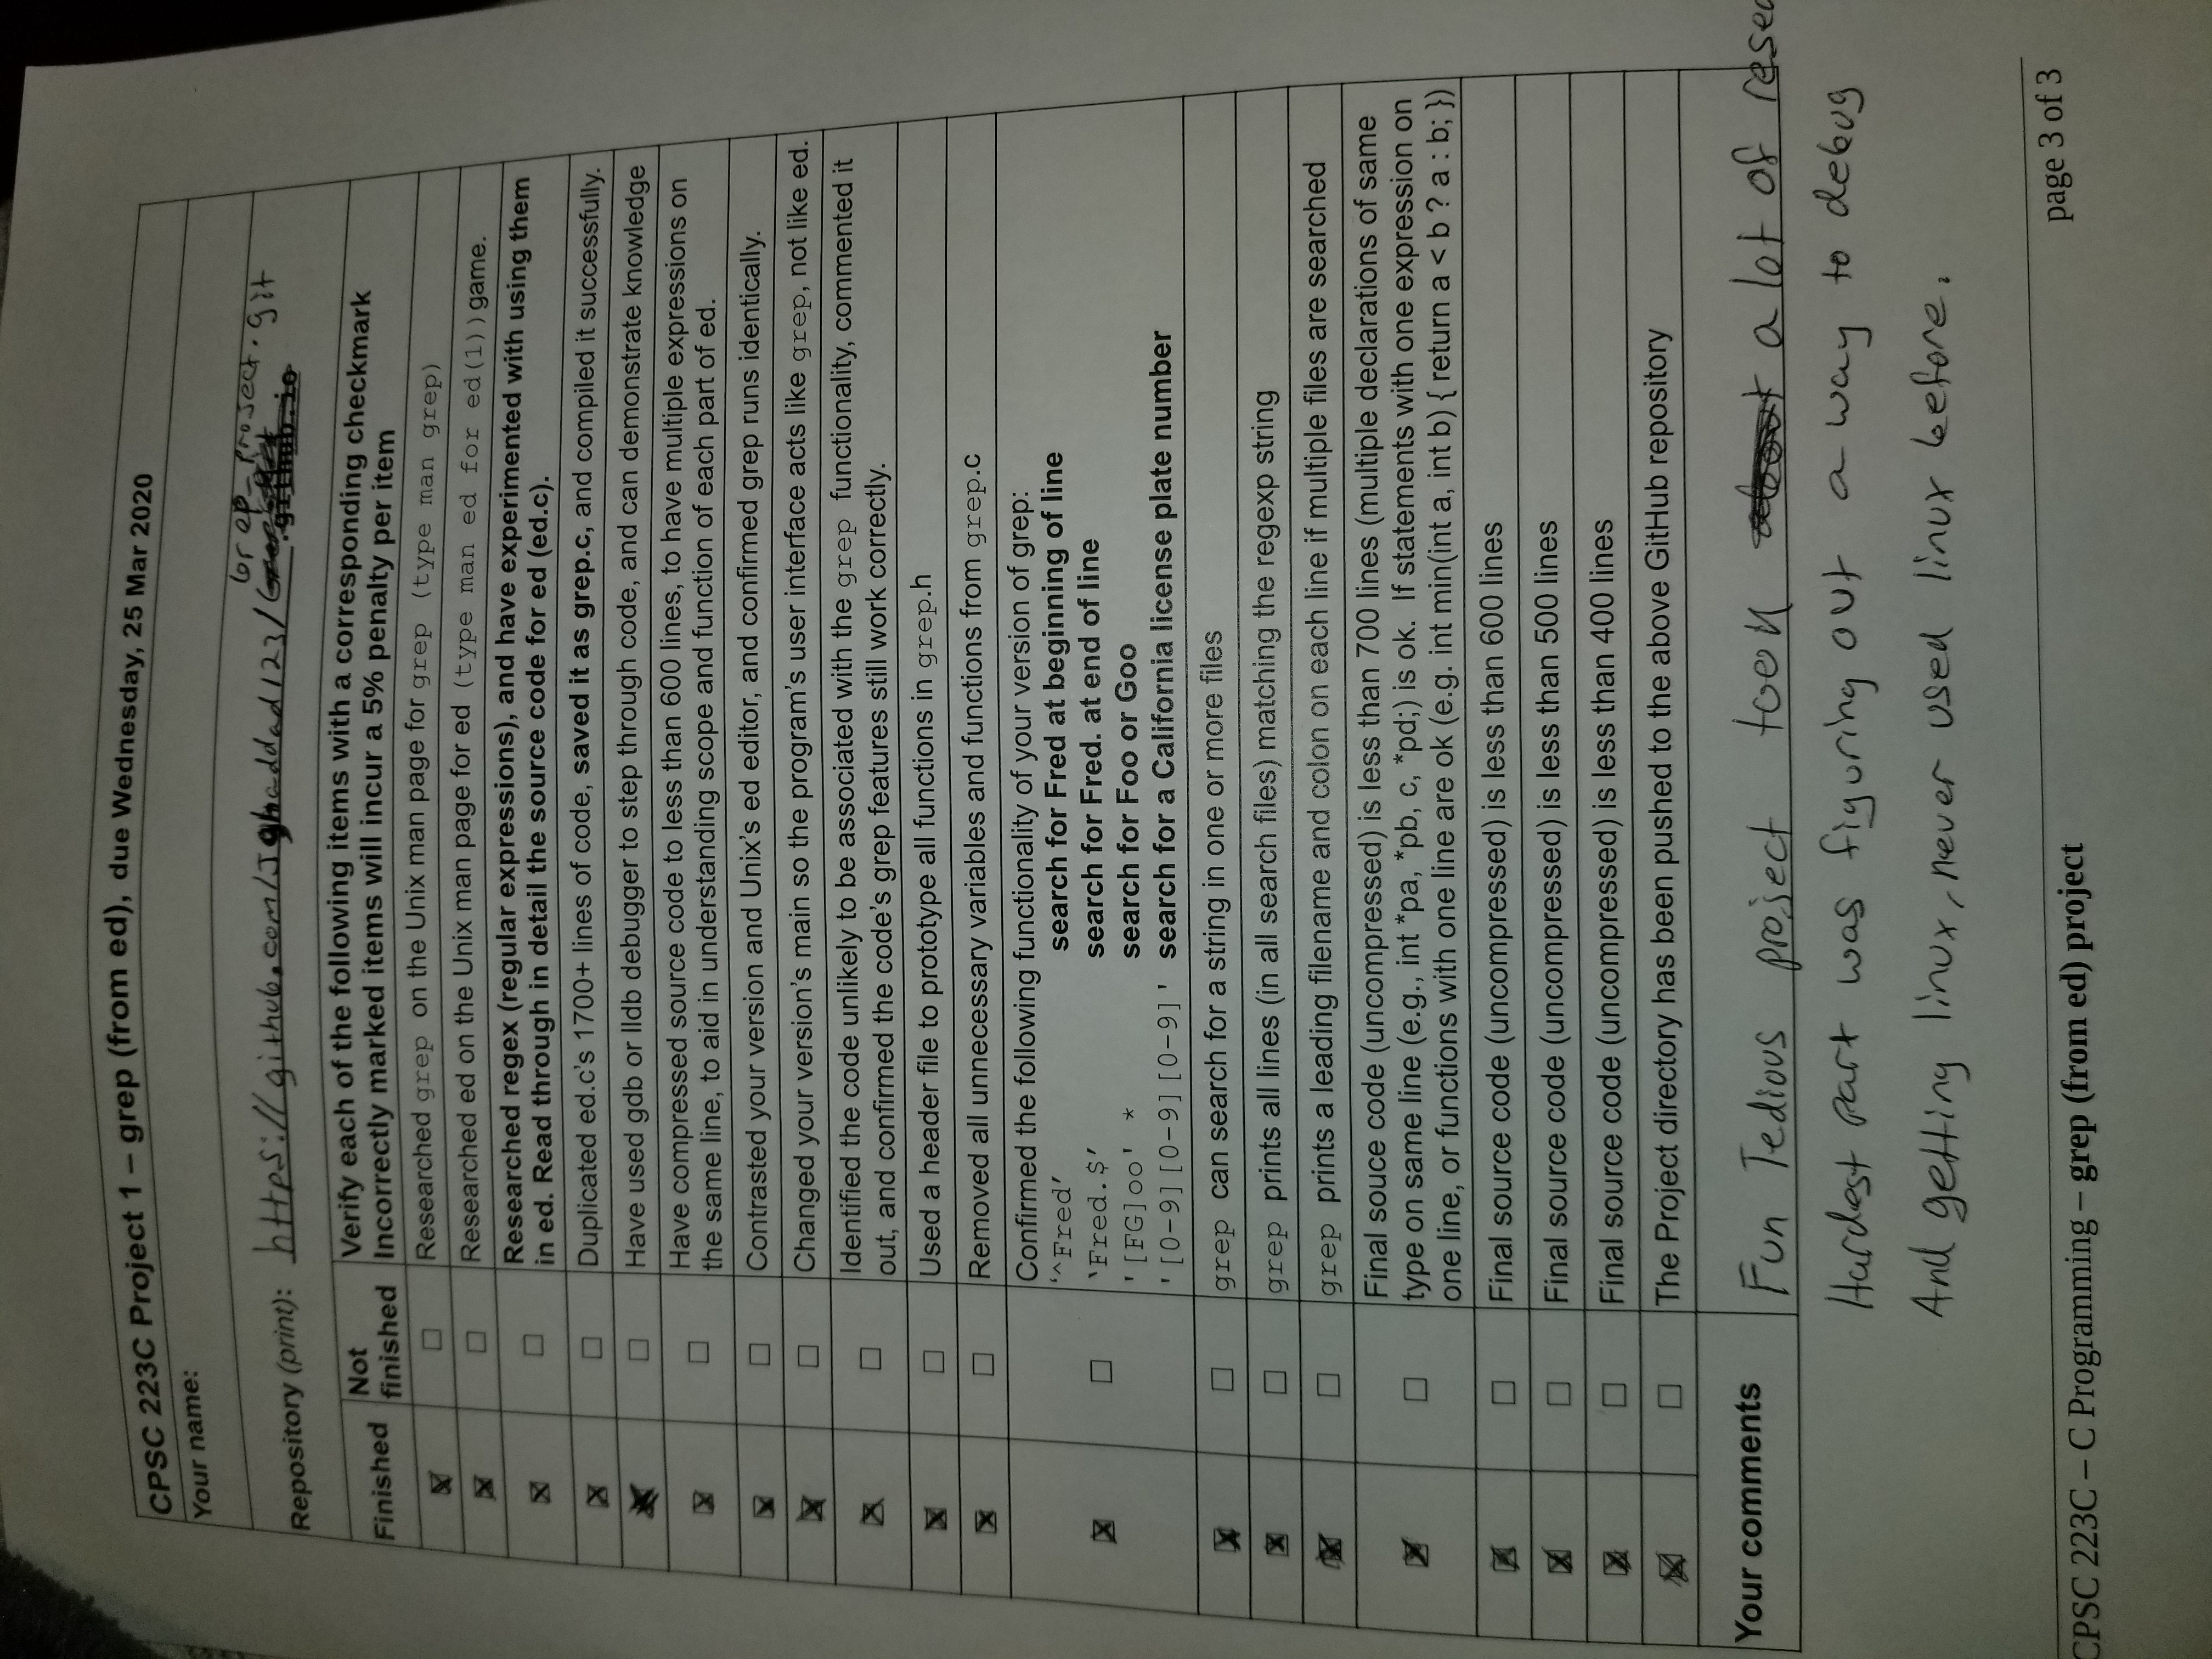 CPSC 223C Project 1 – grep (from ed), due Wednesday, 25 Mar 2020
Your name:
Grep_project.git
Repository (print): https://github.com/Jghaddad123/
.github.io
Finished
Not finished
Verify each of the following items with a corresponding checkmark
Incorrectly marked items will incur a 5% penalty per item
☒ ☐ Researched grep on the Unix man page for grep (type man grep)
☒ ☐ Researched ed on the Unix man page for ed (type man ed for ed(1)) game.
☒ ☐ Researched regex (regular expressions), and have experimented with using them
in ed. Read through in detail the source code for ed (ed.c).
☒ ☐ Duplicated ed.c's 1700+ lines of code, saved it as grep.c, and compiled it successfully.
☒ ☐ Have used gdb or lldb debugger to step through code, and can demonstrate knowledge
☒ ☐ Have compressed source code to less than 600 lines, to have multiple expressions on
the same line, to aid in understanding scope and function of each part of ed.
☒ ☐ Contrasted your version and Unix's ed editor, and confirmed grep runs identically.
☒ ☐ Changed your version's main so the program's user interface acts like grep, not like ed.
☒ ☐ Identified the code unlikely to be associated with the grep functionality, commented it
out, and confirmed the code's grep features still work correctly.
☒ ☐ Used a header file to prototype all functions in grep.h
☒ ☐ Removed all unnecessary variables and functions from grep.c
☒ ☐ Confirmed the following functionality of your version of grep:
‘^Fred’ search for Fred at beginning of line
‘Fred.$’ search for Fred. at end of line
'[FG]oo' * search for Foo or Goo
'[0-9][0-9][0-9]' search for a California license plate number
☒ ☐ grep can search for a string in one or more files
☒ ☐ grep prints all lines (in all search files) matching the regexp string
☒ ☐ grep prints a leading filename and colon on each line if multiple files are searched
☒ ☐ Final souce code (uncompressed) is less than 700 lines (multiple declarations of same
type on same line (e.g., int *pa, *pb, c, *pd;) is ok. If statements with one expression on
one line, or functions with one line are ok (e.g. int min(int a, int b) { return a < b ? a : b; })
☒ ☐ Final source code (uncompressed) is less than 600 lines
☒ ☐ Final source code (uncompressed) is less than 500 lines
☒ ☐ Final source code (uncompressed) is less than 400 lines
☒ ☐ The Project directory has been pushed to the above GitHub repository
Your comments
Fun Tedious project took a lot of resea
Hardest part was figuring out a way to debug
And getting linux, never used linux before.
CPSC 223C – C Programming – grep (from ed) project
page 3 of 3